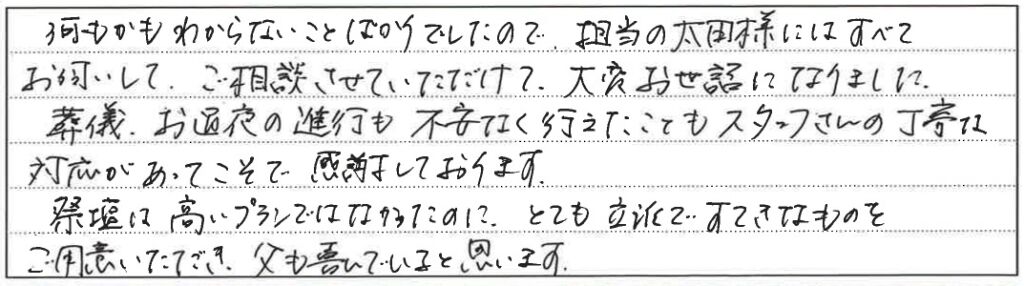 何もかもわからないことばかりでしたので、担当の太田様にはすべて
お伺いして、ご相談させていただけて、大変お世話になりました。
葬儀、お通夜の進行も不安なく行えたこともスタッフさんの丁寧な
対応があってこそで感謝しております。
祭壇は高いプランではなかったのに、とても立派ですてきなものを
ご用意いただき、父も喜んでいると思います。